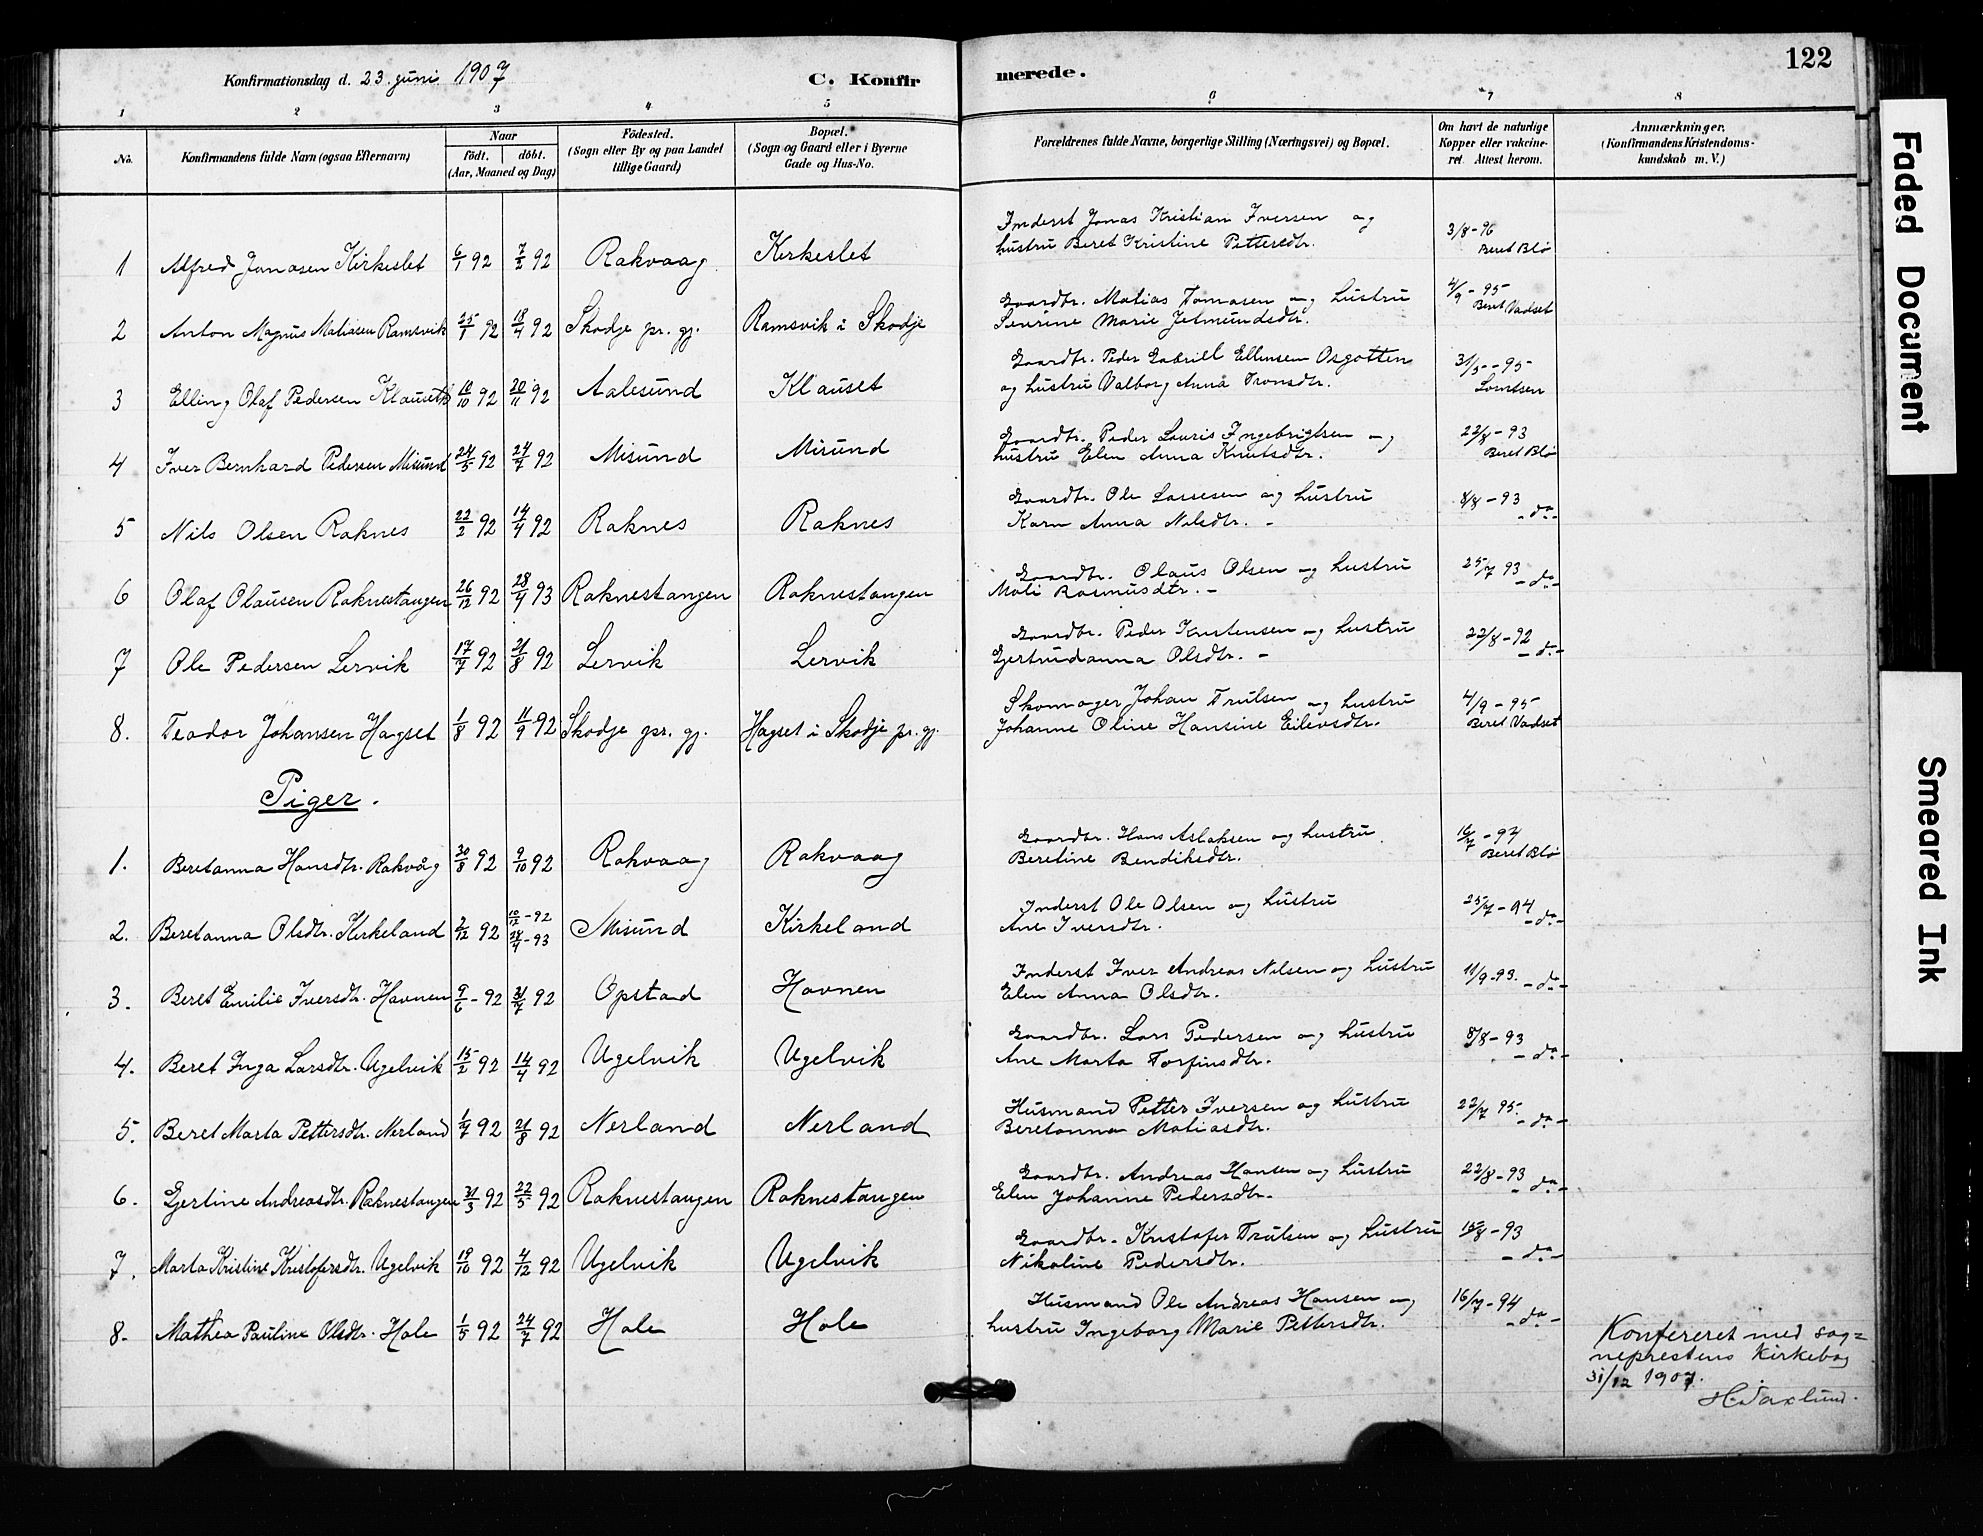 122
Konfirmationsdag d. 23. juni 1907
C. Konfirmerede.
1 2 3 4 5 6 7 8
No.
Konfirmandens fulde Navn (ogsaa Efternavn)
Naar
födt. döbt.
(Aar, Maaned og Dag)
Födested.
(Sogn eller By og paa Landet
tillige Gaard)
Bopæl.
(Sogn og Gaard eller i Byerne
Gade og Hus-No.
Forældrenes fulde Navne, borgerlige Stilling (Næringsvei) og Bopæl.
Om havt de naturlige
Kopper eller vakcine-
ret. Attest herom.
Anmærkninger.
(Konfirmandens Kristendoms-
kundskab m. V.)
1 Alfred Jonasen Kirkeslet 6/1 92 7/2 92 Rakvaag Kirkeslet Inderst Jonas Kristian Iversen og
hustru Beret Kristine Pettersdtr. 3/8-96
Beret Blø
2 Anton Magnus Matiasen Ramsvik 25/1 92 18/4 92 Skodje pr. gj. Ramsvik i Skodje Gaardbr. Matias Tomasen og hustru
Sevrine Marie Jetmundsdtr. 4/9-95
Beret Vadset
3 Elling Olaf Pedersen Klauset 10/10 92 20/11 92 Aalesund Klauset Gaardbr. Peder Gabriel Ellensen Osgotten
og hustru Valborg Anna Tronsdtr. 31/5-95
Lorntsen
4 Iver Bernhard Pedersen Misund 24/5 92 24/7 92 Misund Misund Gaardbr. Peder Lauris Ingebrigtsen og
hustru Elen Anna Knutsdtr. 22/8-93
Beret Blø
5 Nils Olsen Raknes 22/2 92 14/4 92 Raknes Raknes Gaardbr. Ole Lassesen og hustru
Karn Anna Nilsdtr. - 8/8-93
-do-
6 Olaf Olausen Raknestangen 26/12 92 28/4 93 Raknestangen Raknestangen Gaardbr. Olaus Olsen og hustru
Mali Rasmusdtr. - 25/7 93
-do-
7 Ole Pedersen Lervik 17/7 92 21/8 92 Lervik Lervik Gaardbr. Peder Kristensen og hustru
Gjertrudanna Olsdtr. - 22/8-92
-do-
8. Teodor Johansen Hagset 1/8 92 11/9 92 Skodje pr. gj. Hagset i Skodje pr. gj. Skomager Johan Trulsen og hustru
Johanne Oline Hansine Eilevsdtr. 4/9-95
Beret Vadset
Piger.
1. Beretanna Hansdtr. Rakvåg 30/8 92 9/10 92 Rakvaag Rakvaag Gaardbr. Hans Aslaksen og hustru
Beretine Bendiksdtr. 16/7-94
Beret Blø
2. Beretanna Olsdtr. Kirkeland 2/12 92 10/12-92
28/4-93 Misund Kirkeland Inderst Ole Olsen og hustru
Ane Iversdtr. 25/7-94
-do-
3. Beret Emilie Iversdtr. Havnen 9/6-92 31/7 92 Opstad Havnen Inderst Iver Andreas Nilsen og hustru
Elen Anna Olsdtr. 11/9-93.
-do-
4. Beret Inga Larsdtr. Ugelvik 15/2 92 14/4 92 Ugelvik Ugelvik Gaardbr. Lars Pedersen og hustru
Ane Marta Torfinsdtr. 8/8-93
-do-
5. Beret Marta Pettersdtr. Nerland 1/7 92 21/8 92 Nerland Nerland Husmand Petter Iversen og hustru
Beretanna Matiasdtr. 22/7 95.
-do-
6. Gjertine Andreasdtr. Raknestangen 31/3 92 22/5 92 Raknestangen Raknestangen Gaardbr. Andreas Hansen og hustru
Elen Johanne Pedersdtr. 22/8-93
-do-
7. Marta Kristine Kristofersdtr. Ugelvik 19/10 92 4/12 92 Ugelvik Ugelvik Gaardbr. Kristofer Trulsen og hustru
Nikoline Pedersdtr. 15/8-93
-do-
8. Mathea Pauline Olsdtr. Hole 1/5 92 24/7 92 Hole Hole Husmand Ole Andreas Hansen og
hustru Ingeborg Marie Pettersdtr. 16/7-94
-do-
Konfereret med sog=
neprestens Kirkebog
31/12 1907.
H. Saxlund.
Faded Document
Smeared Ink